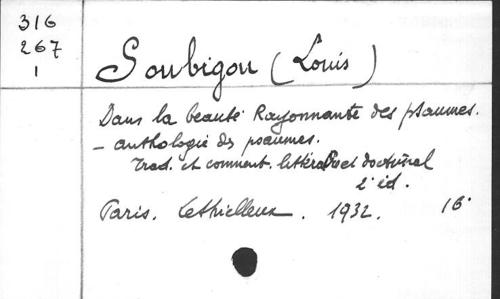 316
267
1
Soubigou (Louis)
Dans la beauté Rayonnante des psaumes.
- anthologie des psaumes.
Trad. et comment. littéral et doctrinal
2e éd.
Paris. Lethielleux. 1932. 16°